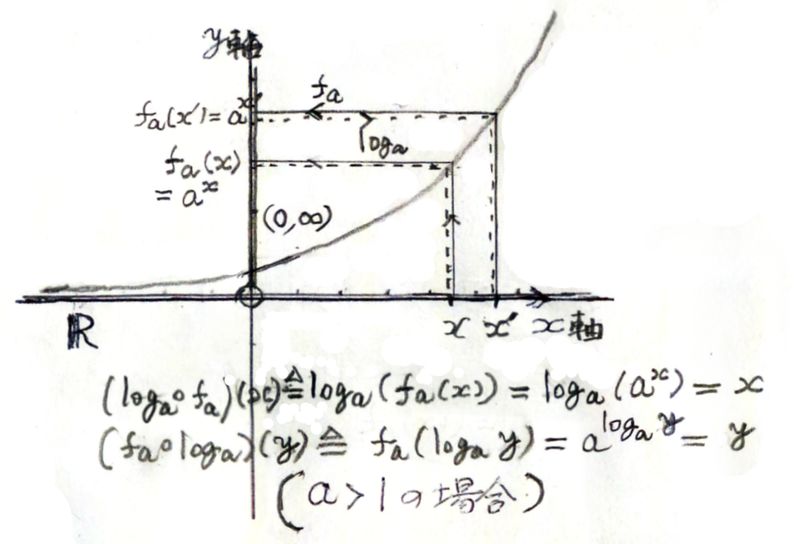 y軸
f_a
f_a(x')=a^x'
log_a
f_a(x)
=a^x
(0,∞)
ℝ
x x' x軸
(log_a∘f_a)(x)≜log_a(f_a(x))=log_a(a^x)=x
(f_a∘log_a)(y)≜f_a(log_a y)=a^{log_a y}=y
(a>1の場合)